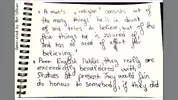 • A man's "religion" consists not of
the many things he is in doubt
of and tries to believe, but of the
few things he is assured of
and has no need of effort for
believing.
• Poor English Public, they really are
exceedingly bewildered with
Statues at present. They would fain
do honour to somebody, if they did